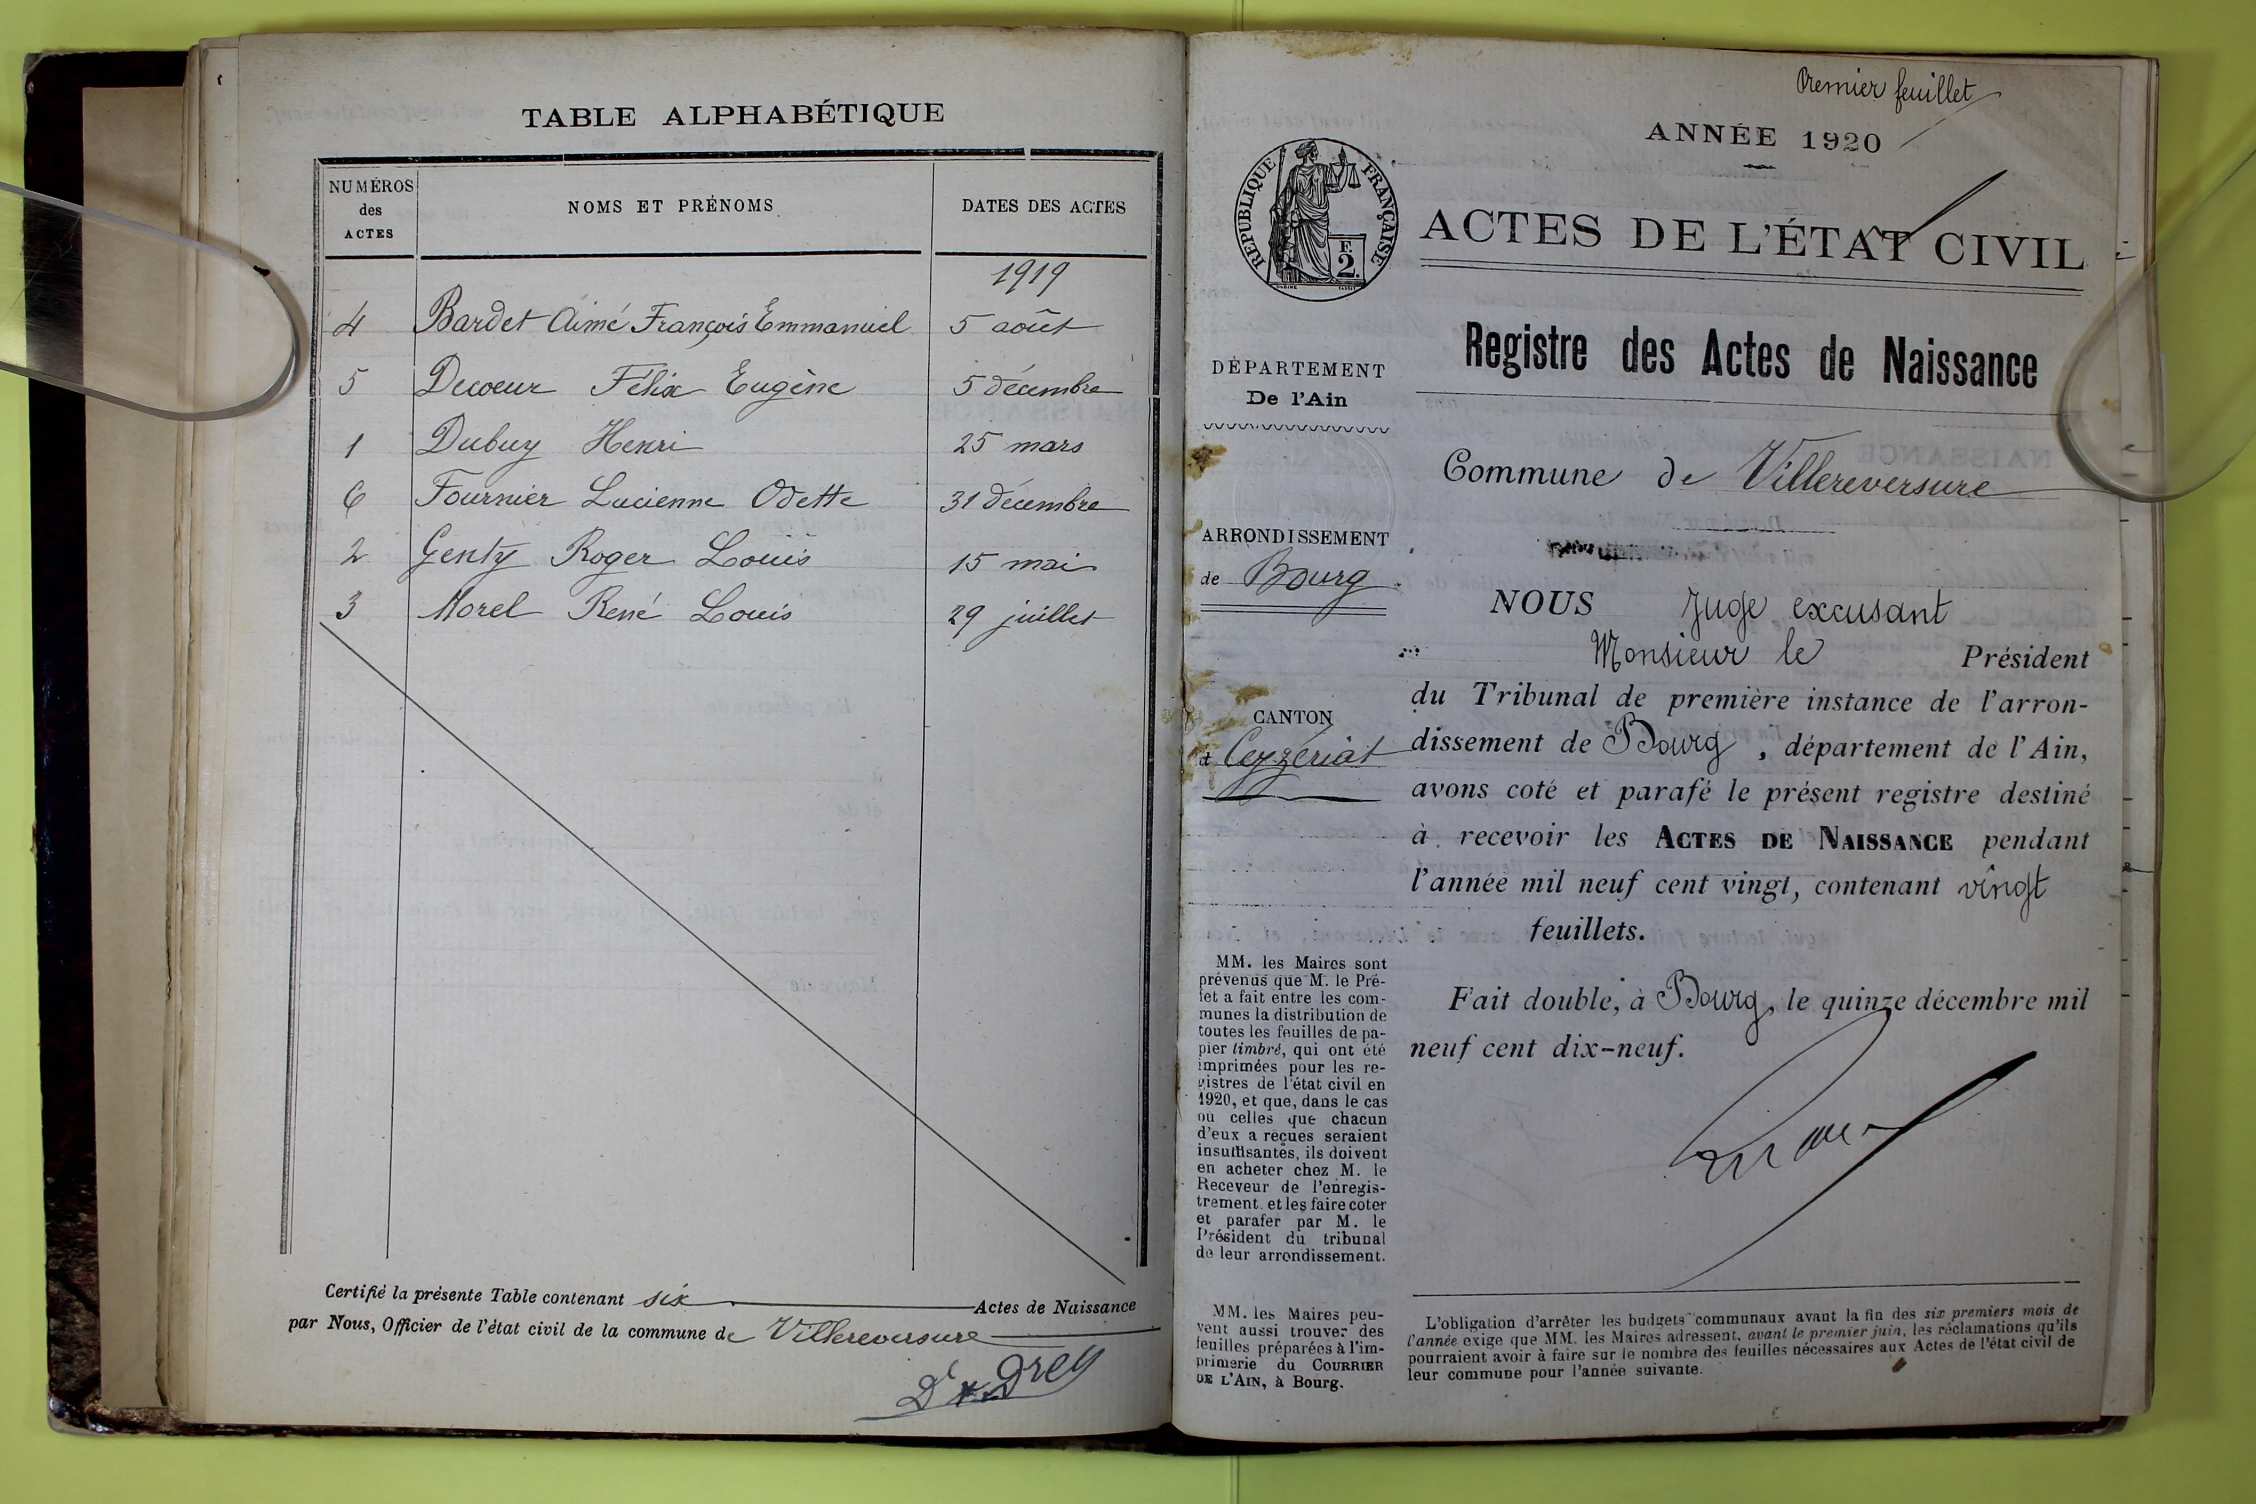 TABLE ALPHABÉTIQUE
NUMÉROS
des
ACTES
NOMS ET PRÉNOMS
DATES DES ACTES
1919
4 Bardet Aimé François Emmanuel 5 août
5 Decoeur Félix Eugène 5 décembre
1 Dubuy Henri 25 mars
6 Fournier Lucienne Odette 31 décembre
2 Genty Roger Louis 15 mai
3 Morel René Louis 29 juillet
Certifié la présente Table contenant six Actes de Naissance
par Nous, Officier de l'état civil de la commune de Villereversure
Premier feuillet
ANNÉE 1920
RÉPUBLIQUE FRANÇAISE
F.
2.
ACTES DE L'ÉTAT CIVIL
Registre des Actes de Naissance
DÉPARTEMENT
De l'Ain
Commune de Villereversure
ARRONDISSEMENT
de Bourg
CANTON
d Ceyzériat
NOUS Juge excusant
Monsieur le Président
du Tribunal de première instance de l'arron-
dissement de Bourg, département de l'Ain,
avons coté et parafé le présent registre destiné
à recevoir les ACTES DE NAISSANCE pendant
l'année mil neuf cent vingt, contenant vingt
feuillets.
Fait double, à Bourg, le quinze décembre mil
neuf cent dix-neuf.
MM. les Maires sont
prévenus que M. le Pré-
fet a fait entre les com-
munes la distribution de
toutes les feuilles de pa-
pier timbré, qui ont été
imprimées pour les re-
gistres de l'état civil en
1920, et que, dans le cas
où celles que chacun
d'eux a reçues seraient
insuffisantes, ils doivent
en acheter chez M. le
Receveur de l'enregis-
trement et les faire coter
et parafer par M. le
Président du tribunal
de leur arrondissement.
MM. les Maires peu-
vent aussi trouver des
feuilles préparées à l'im-
primerie du COURRIER
DE L'AIN, à Bourg.
L'obligation d'arrêter les budgets communaux avant la fin des six premiers mois de
l'année exige que MM. les Maires adressent, avant le premier juin, les réclamations qu'ils
pourraient avoir à faire sur le nombre des feuilles nécessaires aux Actes de l'état civil de
leur commune pour l'année suivante.